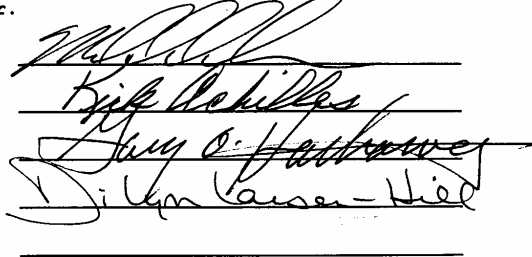 c.
Kirk Achilles
Gary O. Hathaway
DiLynn Larsen-Hill